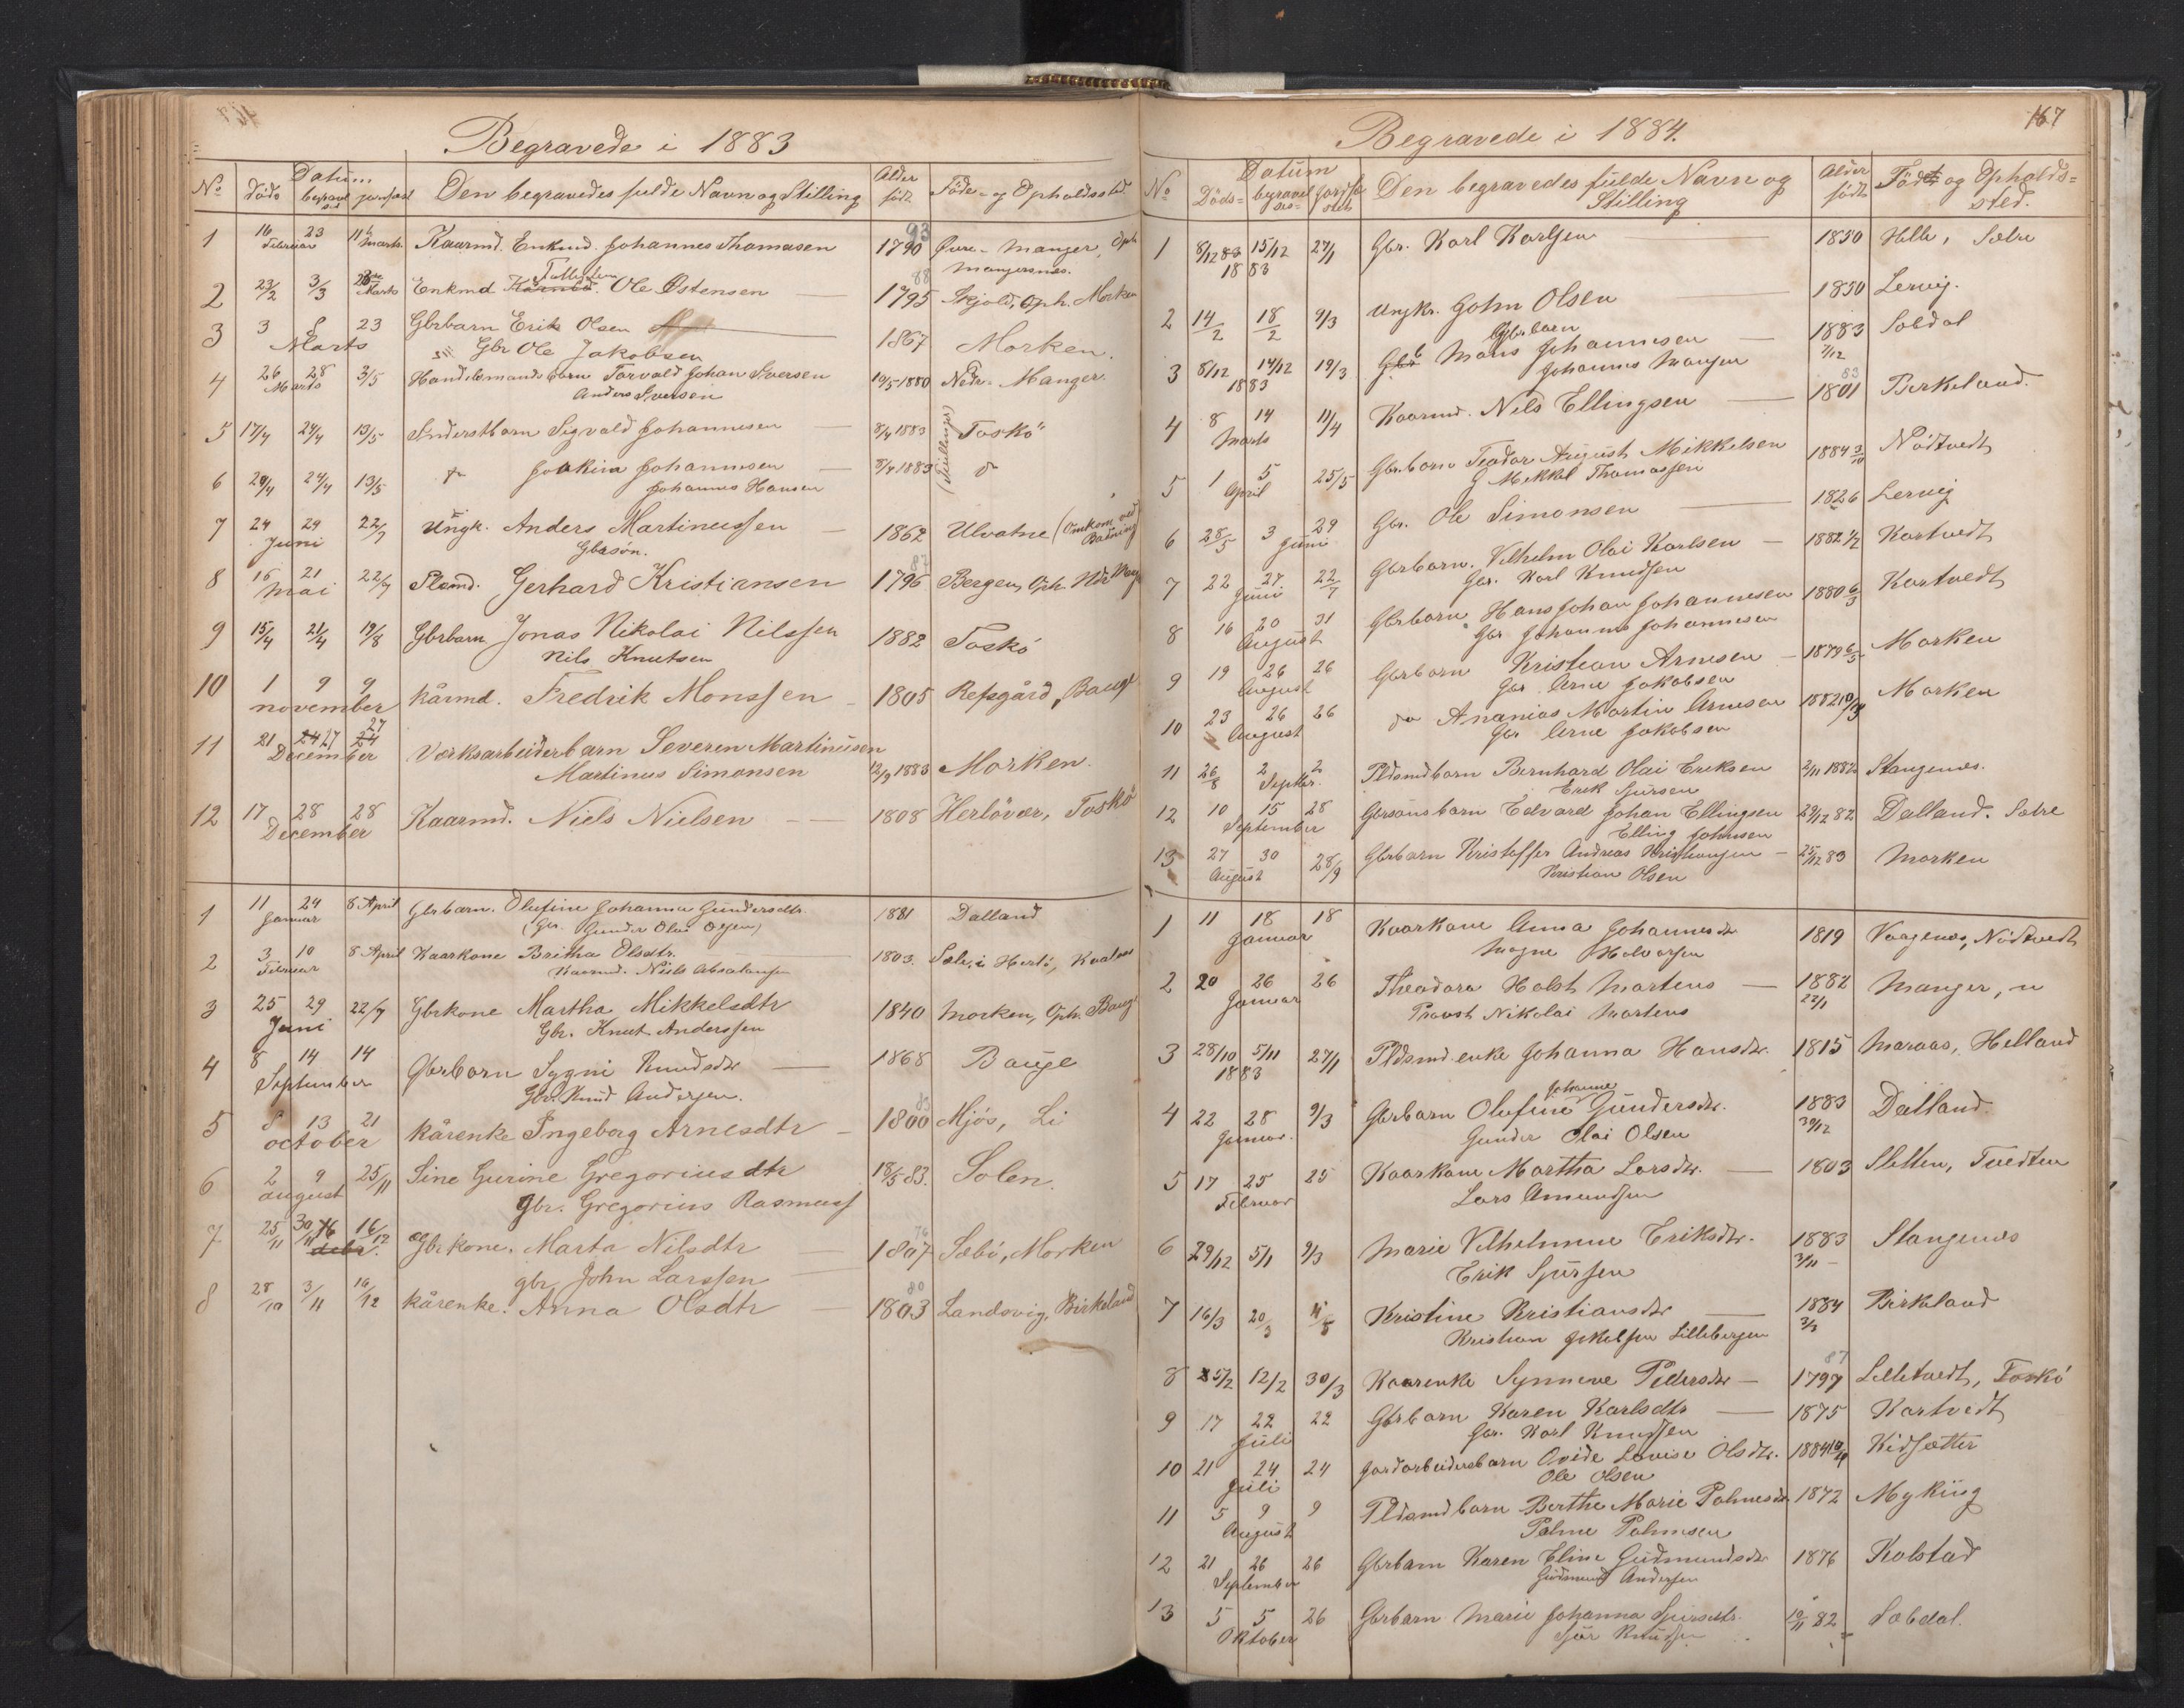 Begravede i 1883
No Datum Den begravedes fulde Navn og Stilling Alder Føde- og Opholdssted
døds begravelses jordfæst født
1 16 23 11te Marts Kaarmd. Enkmd. Johannes Thomasen 1790 93 Øvre-Manger, Oph
Februar Mangersnes.
2 23/2 3/3 26de Marts Enkmd Ole Østensen 1795 88 Skjold, Oph. Morken
3 3 8 23 Gbrbarn Erik Olsen 1867 Morken.
Marts Gbr Ole Jakobsen
4 26 28 3/5 Handelsmandsbarn Torvald Johan Iversen 19/5 1880 Nedr. Manger.
Marts Anders Iversen
5 17/4 24/4 13/5 Inderstbarn Sigvald Johannesen 8/4 1883 (Tvillinger) Toskø
6 20/4 24/4 13/5 do Joakim Johannesen 8/4 1883 do
Johannes Hansen
7 24 29 22/7 Ungk. Anders Martinussen 1862 Ulvatne (Omkom ved
Juni Gbrsøn. Badning
8 16 21 22/7 Plsmd. Gerhard Kristiansen 1796 87 Bergen, Oph. Ndr Mang
Mai
9 15/4 21/4 19/8 Gbrbarn Jonas Nikolai Nilssen 1882 Toskø
Nils Knutsen
10 1 9 9 kårmd. Fredrik Monssen 1805 Refsgård, Bauge
november
11 21 24 27 24 27 Værksarbeiderbarn Severin Martinusen
December Martinus Simonsen 12/9 1883 Morken.
12 17 28 28 Kaarmd. Niels Nielsen 1808 Herlövær, Toskö
December
1 11 24 8 April Gbrbarn. Olufine Johanna Gundersdtr. 1881 Dalland
Januar (Gbr. Gunder Olai Olsen)
2 3 10 8 April Kaarkone Britha Olsdtr. 1803. Sæle, i Herlö,
Februar Kaarmd. Niels Absalonsen
3 25 29 22/7 Gbrkone Martha Mikkelsdtr 1840 Morken, Oph. Bauge
Juni Gbr. Knut Anderssen
4 8 14 14 Gbrbarn Sygni Knudsdtr 1868 Bauge
September Gbr. Knud Andersen.
5 8 13 21 kårenke Ingeborg Arnesdtr 1800 83 Mjös, Li
october
6 2 9 25/11 Sine Gurine Gregoriusdtr 18/5 83. Solen.
august gbr. Gregorius Rasmuss
7 25/11 30/11 16 16/12 Gbrkone. Marta Nilsdtr 1807 76 Sæbö, Morken
decbr. gbr. John Larssen
8 28/10 3/11 16/12 kårenke. Anna Olsdtr 1803 80 Landsvig, Birkeland
167
Begravede i 1884.
No Datum Den begravedes fulde Navn og Alder Födt og Opholds-
Döds- begravelses- jordfæstet Stilling født sted.
1 8/12 83 15/12 27/1 Gbr. Karl Karlsen 1850 Helle, Sætre
1883
2 14/2 18/2 9/3 Ungkr. John Olsen 1850 Lervig.
3 8/12 14/12 19/3 Gbrbarn Mons Johannesen 1883 Sobdal
1883 Johannes Monsen 7/12
4 8 14 11/4 Kaarmd. Nils Ellingsen 1801 83 Birkeland.
Marts
5 1 5 25/5 Gbrbarn Teodor August Mikkelsen 1884 3/10 Nödtvedt
April G Mikkel Thomassen
6 28/5 3 29 Gbr. Ole Simonsen 1826 Lervig
Juni
7 22 27 22/7 Gbrbarn. Vilhelm Olai Karlsen 1882 1/2 Kartvedt
Juni Gbr. Karl Knudsen
8 16 20 31 Gbrbarn Hans Johan Johannesen 1880 6/3 Kartvedt
August Gbr Johannes Johannesen
9 19 26 26 Gbrbarn Kristian Arnesen 1879 6/5 Morken
August Gbr Arne Jakobsen
10 23 26 26 do Ananias Martin Arnesen 1882 Morken
August Gbr Arne Jakobsen
11 26/8 2 2 Pldsmdbarn Bernhard Olai Eriksen 2/11 1882 Stangenes.
Septbr. Erik Sjursen
12 10 15 28 Gbrsønsbarn Edvard Johan Ellingsen 29/12 82 Dalland. Sætre
September Elling Johnsen
13 27 30 28/9 Gbrbarn Kristoffer Andreas Kristiansen 25/12 83 Morken
August Kristian Olsen
1 11 18 18 Kaarkone Anna Johannesdtr 1819 Vaagenes, Nödtvedt
Januar Magne Halvorsen
2 20 26 26 Theodora Holst Martens 1882 Manger, n
Januar Provst Nikolai Martens 22/1
3 28/10 5/11 27/1 Pldsmd.enke Johanna Hansdtr. 1815 Maraas, Helland
1883
4 22 28 9/3 Gbrbarn Olufine Johanne Gundersdtr. 1883 Dalland.
Januar. Gunder Olai Olsen 30/12
5 17 25 25 Kaarkone Martha Larsdtr. 1803 Sletten, Tvedten
Februar Lars Amundsen
6 29/12 5/1 9/3 Marie Vilhelmine Eriksdtr. 1883 Stangenes
Erik Sjursen 3/11
7 16/3 20/3 4/5 Kristine Kristiansdtr 1884 Birkeland
Kristian Jakobsen Lillebergen 3/3
8 5/2 12/2 30/3 Kaarenke Synneve Pedersdtr 1797 87 Lilletvedt, Toskö
9 17 22 22 Gbrbarn Karen Karlsdtr 1875 Kartvedt
Juli Gbr. Karl Knudsen
10 21 24 24 Jordarbeidersbarn Ovide Lovise Olsdtr. 1884 Kidsætter
Juli Ole Olsen
11 5 9 9 Pldsmdbarn Berthe Marie Palmesdtr 1872 Myking
August Palme Palmesen
12 21 26 26 Gbrbarn Karen Eline Gudmundsdtr 1876 Kolstad
September Gudmund Andersen
13 5 5 26 Gbrbarn Marie Johanna Sjursdtr. 10/11 82 Sobdal.
Oktober Sjur Knudsen